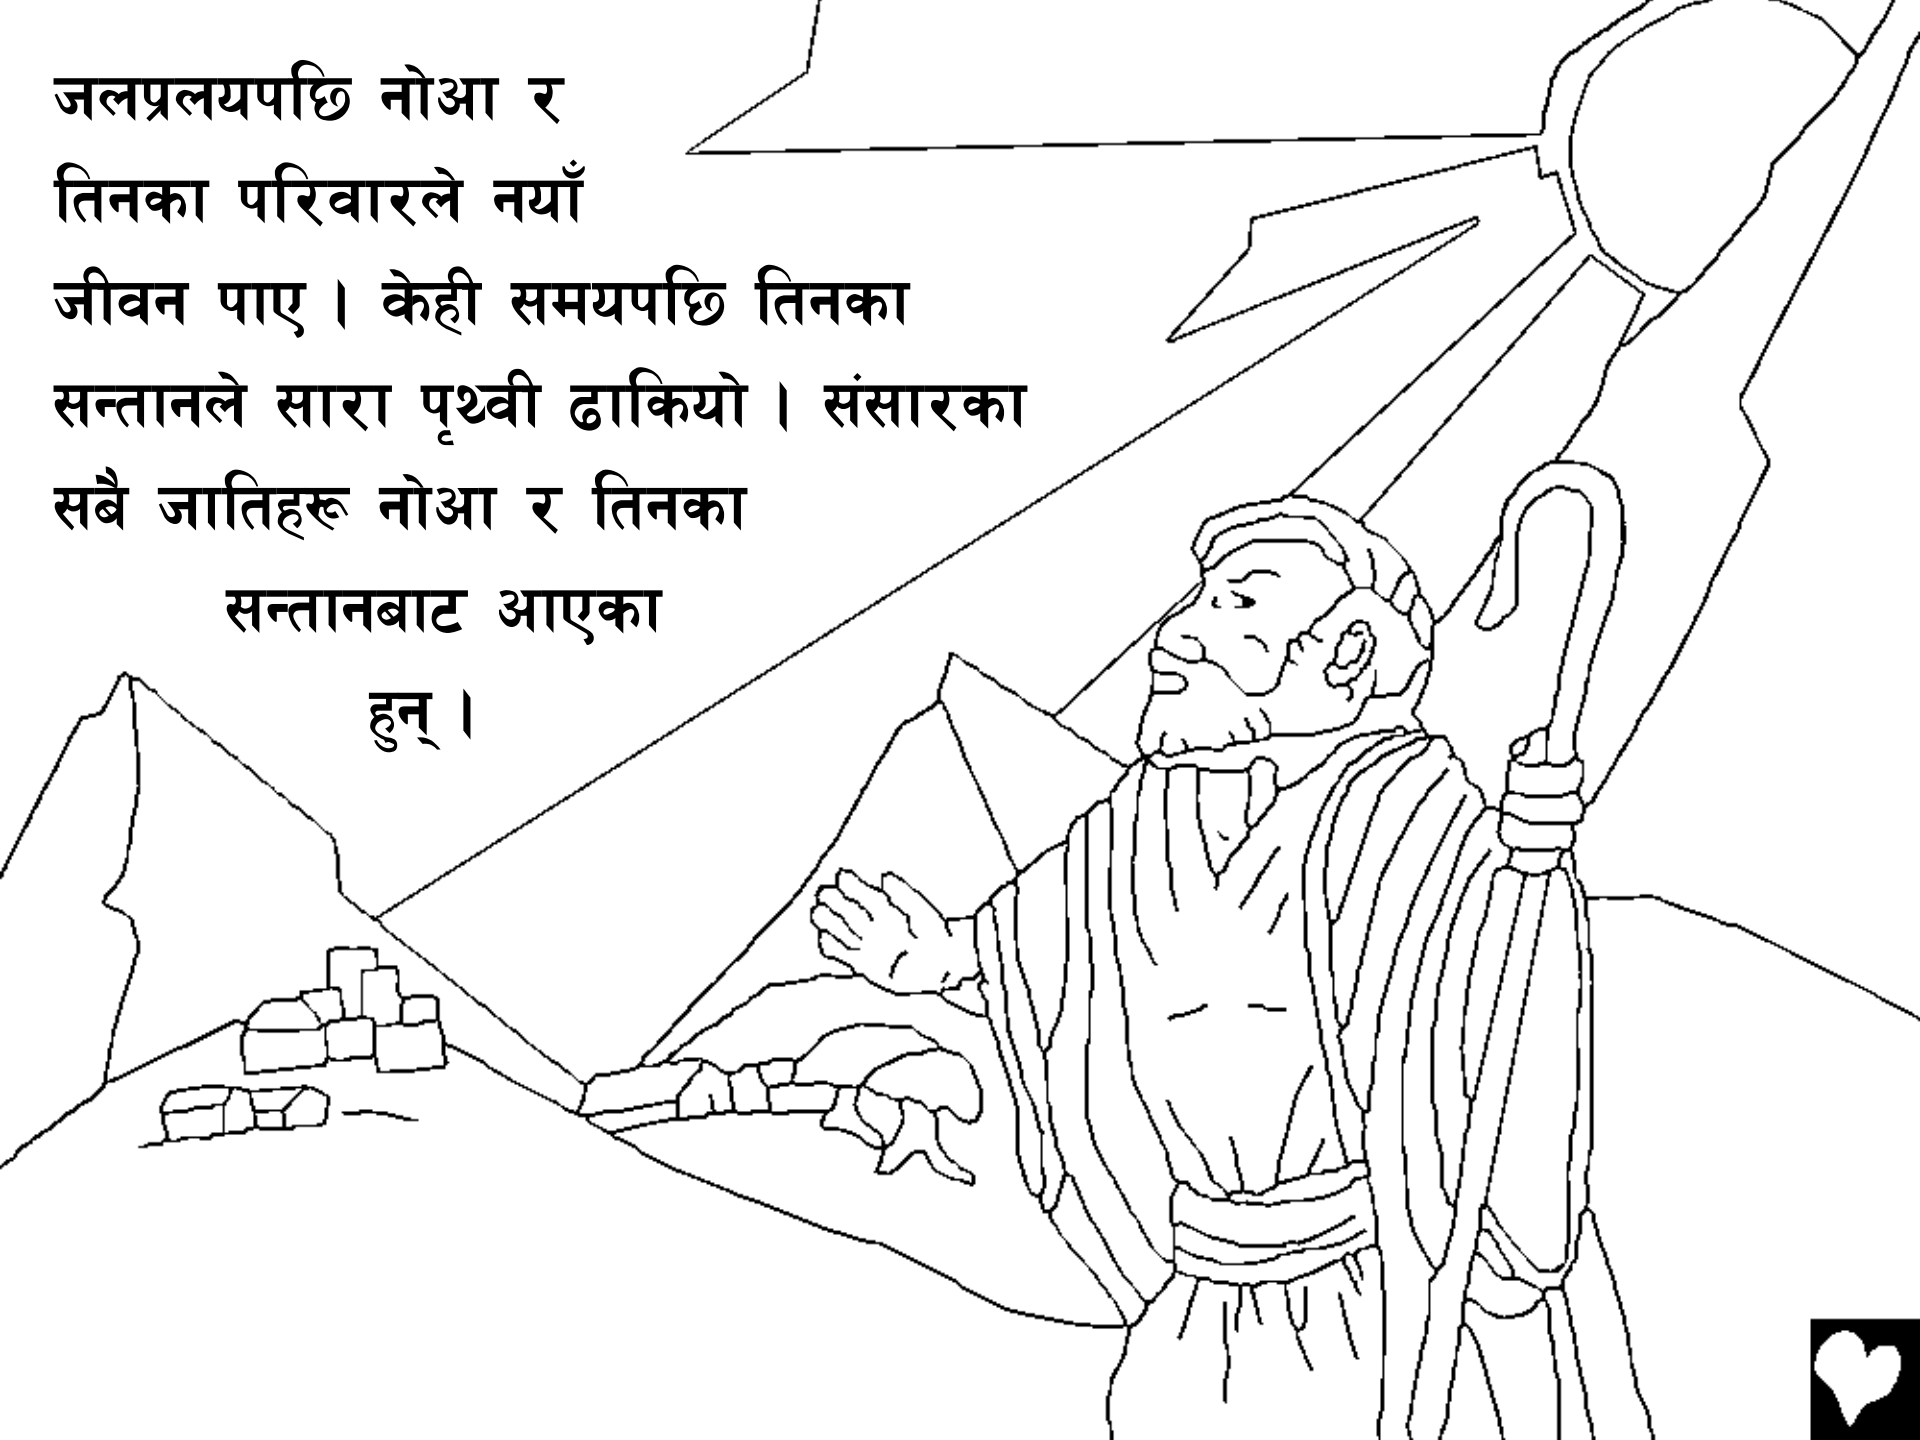 जलप्रलयपछि नोआ र
तिनका परिवारले नयाँ
जीवन पाए । केही समयपछि तिनका
सन्तानले सारा पृथ्वी ढाकियो । संसारका
सबै जातिहरू नोआ र तिनका
सन्तानबाट आएका
हुन् ।